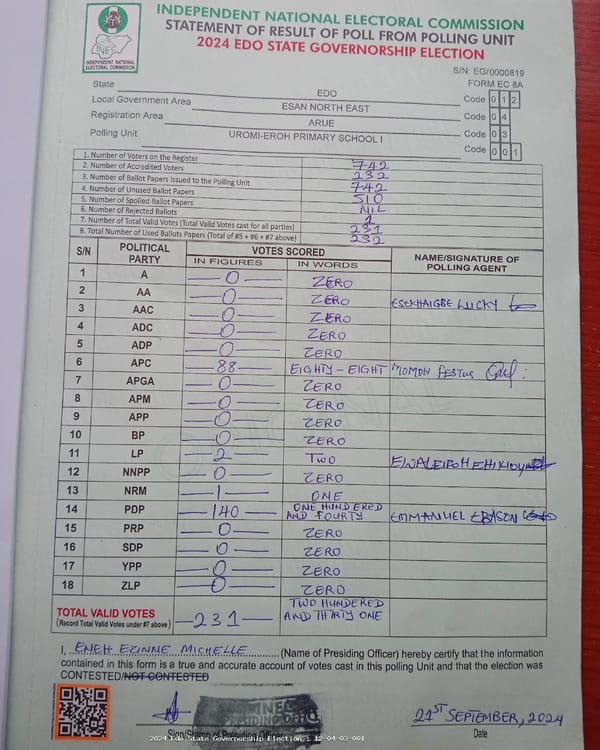 INDEPENDENT NATIONAL ELECTORAL COMMISSION
STATEMENT OF RESULT OF POLL FROM POLLING UNIT
2024 EDO STATE GOVERNORSHIP ELECTION
INEC
INDEPENDENT NATIONAL
ELECTORAL COMMISSION
S/N: EG/0000819
FORM EC 8A
State EDO Code 0 1 2
Local Government Area ESAN NORTH EAST Code 0 4
Registration Area ARUE Code 0 3
Polling Unit UROMI-EROH PRIMARY SCHOOL I Code 0 0 1
1. Number of Voters on the Register 742
2. Number of Accredited Voters 232
3. Number of Ballot Papers Issued to the Polling Unit 742
4. Number of Unused Ballot Papers 510
5. Number of Spoiled Ballot Papers NIL
6. Number of Rejected Ballots
7. Number of Total Valid Votes (Total Valid Votes cast for all parties) 231
8. Total Number of Used Ballots Papers (Total of #5 + #6 + #7 above) 232
S/N POLITICAL PARTY VOTES SCORED NAME/SIGNATURE OF POLLING AGENT
IN FIGURES IN WORDS
1 A 0 ZERO
2 AA 0 ZERO ESEKHAIGBE LUCKY
3 AAC 0 ZERO
4 ADC 0 ZERO
5 ADP 0 ZERO
6 APC 88 EIGHTY-EIGHT MOMOH FESTUS
7 APGA 0 ZERO
8 APM 0 ZERO
9 APP 0 ZERO
10 BP 0 ZERO
11 LP 2 TWO
12 NNPP 0 ZERO
13 NRM 1 ONE
14 PDP 140 ONE HUNDERED AND FOURTY EMMANUEL EBASON
15 PRP 0 ZERO
16 SDP 0 ZERO
17 YPP 0 ZERO
18 ZLP 0 ZERO
TOTAL VALID VOTES
(Record Total Valid Votes under #7 above) 231 TWO HUNDERED AND THIRTY ONE
I, ENEH EZINNE MICHELLE (Name of Presiding Officer) hereby certify that the information
contained in this form is a true and accurate account of votes cast in this polling Unit and that the election was
CONTESTED/NOT CONTESTED
INEC
PRESIDING OFFICER
Sign/Stamp of Presiding Officer
21ST SEPTEMBER, 2024
Date
2024 Edo State Governorship Election 1 12-04-03-001